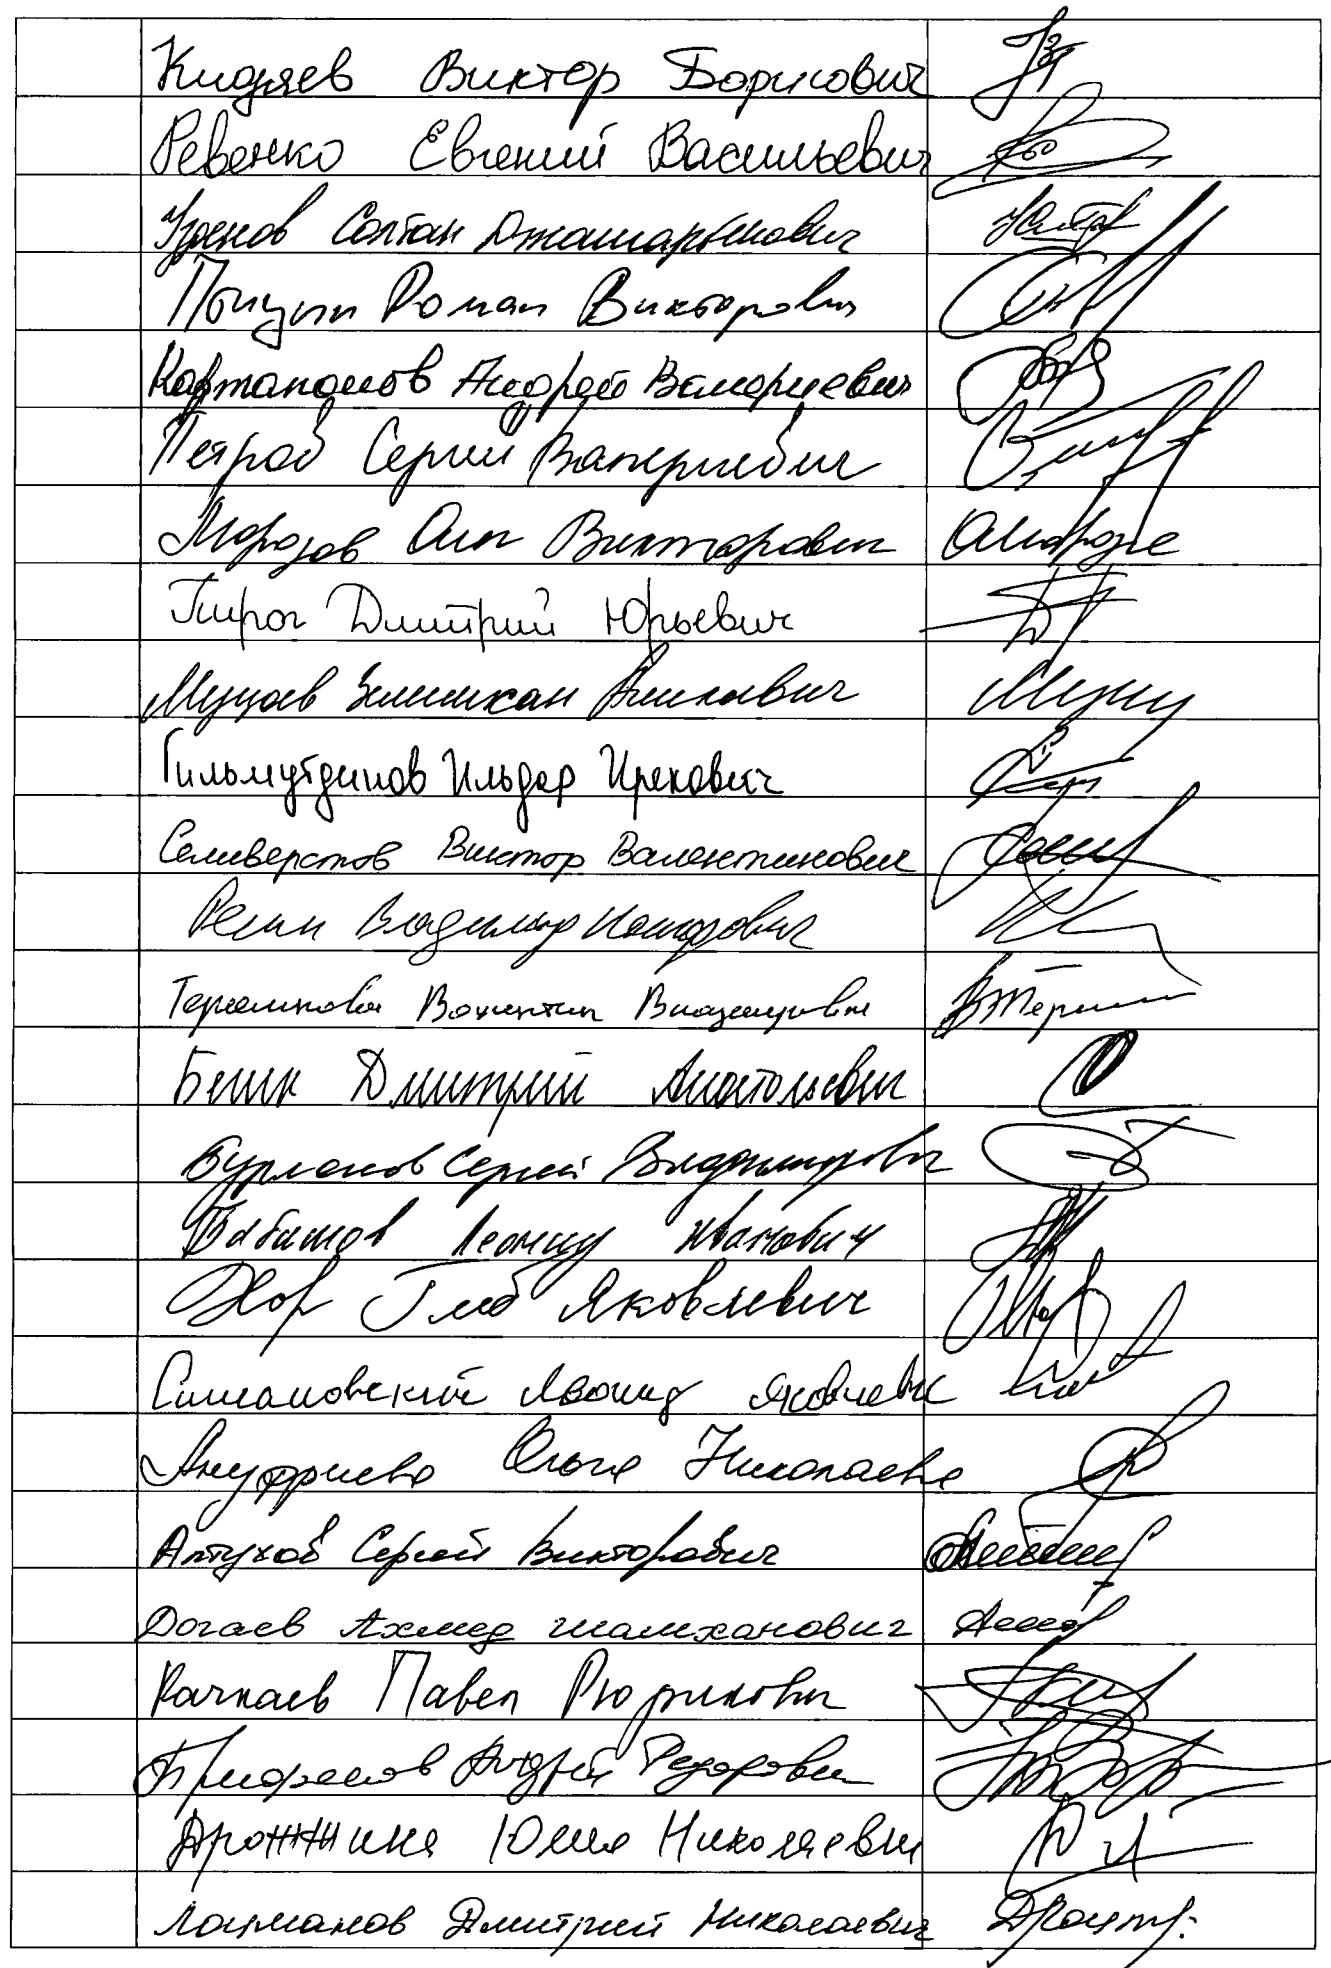 Кидяев Виктор Борисович
Ревенко Евгений Васильевич
Узденов Солтан Джашарбекович
Птицын Роман Викторович
Картаполов Андрей Валериевич
Петров Сергей Валериевич
Морозов Олег Викторович
Пирог Дмитрий Юрьевич
Муцоев Зелимхан Аликоевич
Гильмутдинов Ильдар Ирекович
Селиверстов Виктор Валентинович
Ресин Владимир Иосифович
Терешкова Валентина Владимировна
Бегик Дмитрий Анатольевич
Бурлаков Сергей Владимирович
Бабашов Леонид Иванович
Хор Глеб Яковлевич
Симановский Леонид Яковлевич
Ануфриева Ольга Николаевна
Алтухов Сергей Викторович
Догаев Ахмед Шамханович
Качкаев Павел Рюрикович
Андрей Федорович
Дрожжина Юлия Николаевна
Лоцманов Дмитрий Николаевич